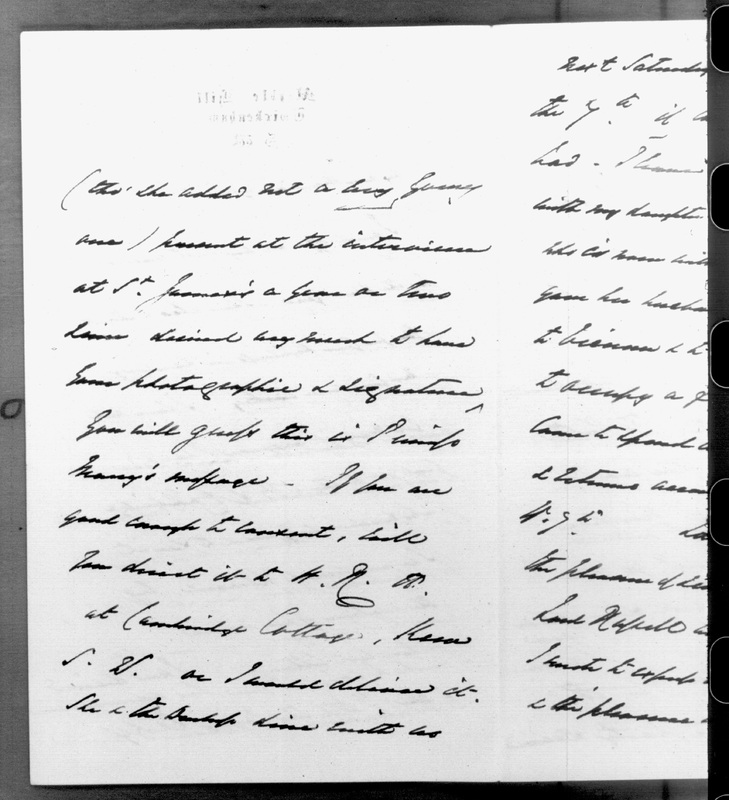 Marble Hill
Twickenham
S. W.
(tho' she added not a very Young
one) present at the interview
at St. James's a year or two
since desired very much to have
Your photographie & Signature,
You will guess this is Princess
Mary's message - If you are
good enough to consent, will
You direct it to H. R. H.
at Cambridge Cottage, Kew
S. W. or I would deliver it.
She & the Duchess dine with us
next Saturday
the 7th if
had -
with my daughter
who is now with
gave her husband
to Vienna & to
to occupy a
Came to spend
& returns
the pleasure of
Lord Russell
I wrote to express
& the pleasure